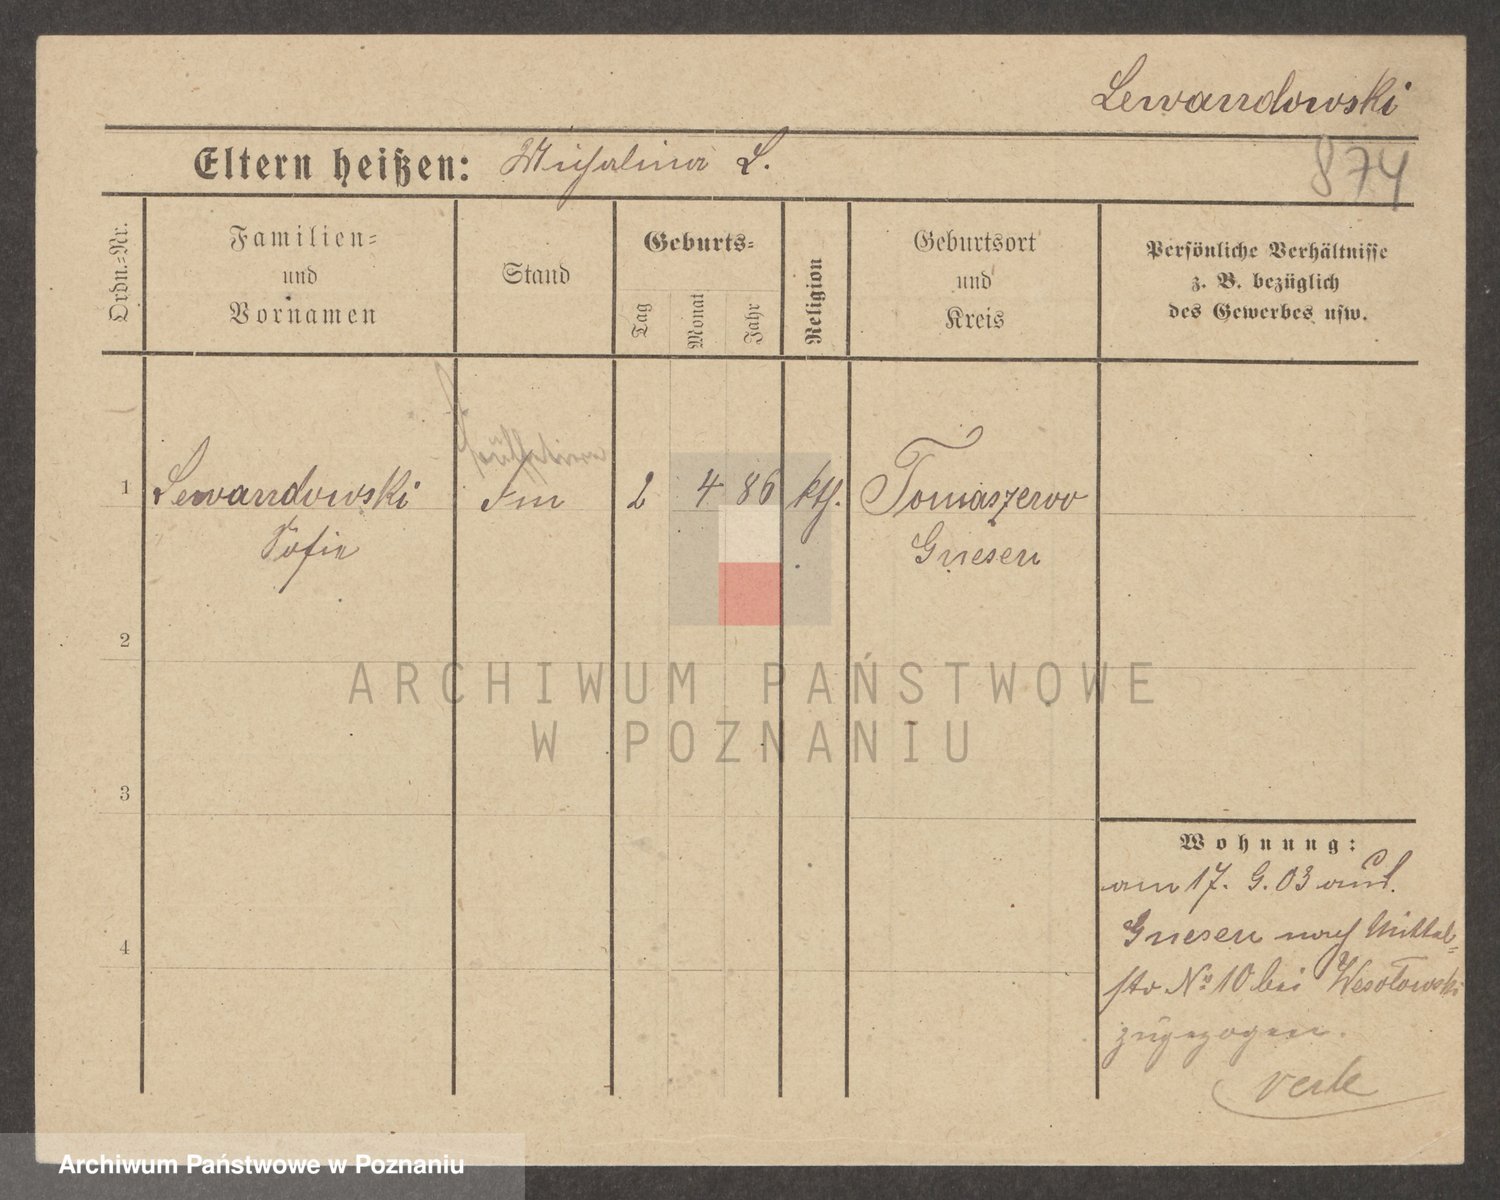 Lewandowski
Eltern heißen: Michalina L.
874
Ordn.-Nr.
Familien-
und
Vornamen
Stand
Geburts-
Tag
Monat
Jahr
Religion
Geburtsort
und
Kreis
Persönliche Verhältnisse
z. B. bezüglich
des Gewerbes usw.
1 Lewandowski 2 4 86 kth. Tomaszewo
Sofie Gnesen
2
3
4
Wohnung:
am 17. 9. 03 aus
Gnesen nach Mittel-
str No 10 bei Wesołowski
zugezogen.
ARCHIWUM PAŃSTWOWE
W POZNANIU
Archiwum Państwowe w Poznaniu